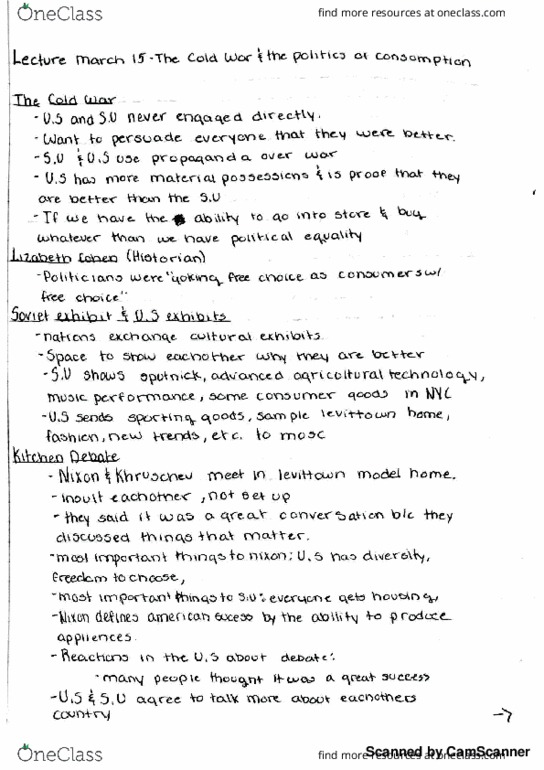 OneClass
find more resources at oneclass.com
Lecture march 15 - The Cold War & the politics of consomption
The Cold War
- U.S and S.U never engaged directly.
- Want to persuade everyone that they were better.
- S.U & U.S use propaganda over war
- U.S has more material possessions & is proof that they
are better than the S.U
- If we have the ability to go into store & buy
whatever than we have political equality
Lizabeth Cohen (Historian)
- Politicians were "yoking free choice as consumers w/
free choice"
Soviet exhibit & U.S exhibits
- nations exchange cultural exhibits.
- Space to show eachother why they are better
- S.U shows sputnick, advanced agricultural technology,
music performance, some consumer goods in NYC
- U.S sends sporting goods, sample levittown home,
fashion, new trends, etc. to mosc
Kitchen Debate
- Nixon & Khruschev meet in levittown model home.
- insult eachother, not set up
- they said it was a great conversation b/c they
discussed things that matter.
- most important things to nixon; U.S has diversity,
freedom to choose,
- most important things to S.U: everyone gets housing,
- Nixon defines american sucess by the ability to produce
appliences.
- Reactions in the U.S about debate:
- many people thought it was a great success
- U.S & S.U agree to talk more about eachothers
country
→
OneClass
find more resources at oneclass.com
Scanned by CamScanner